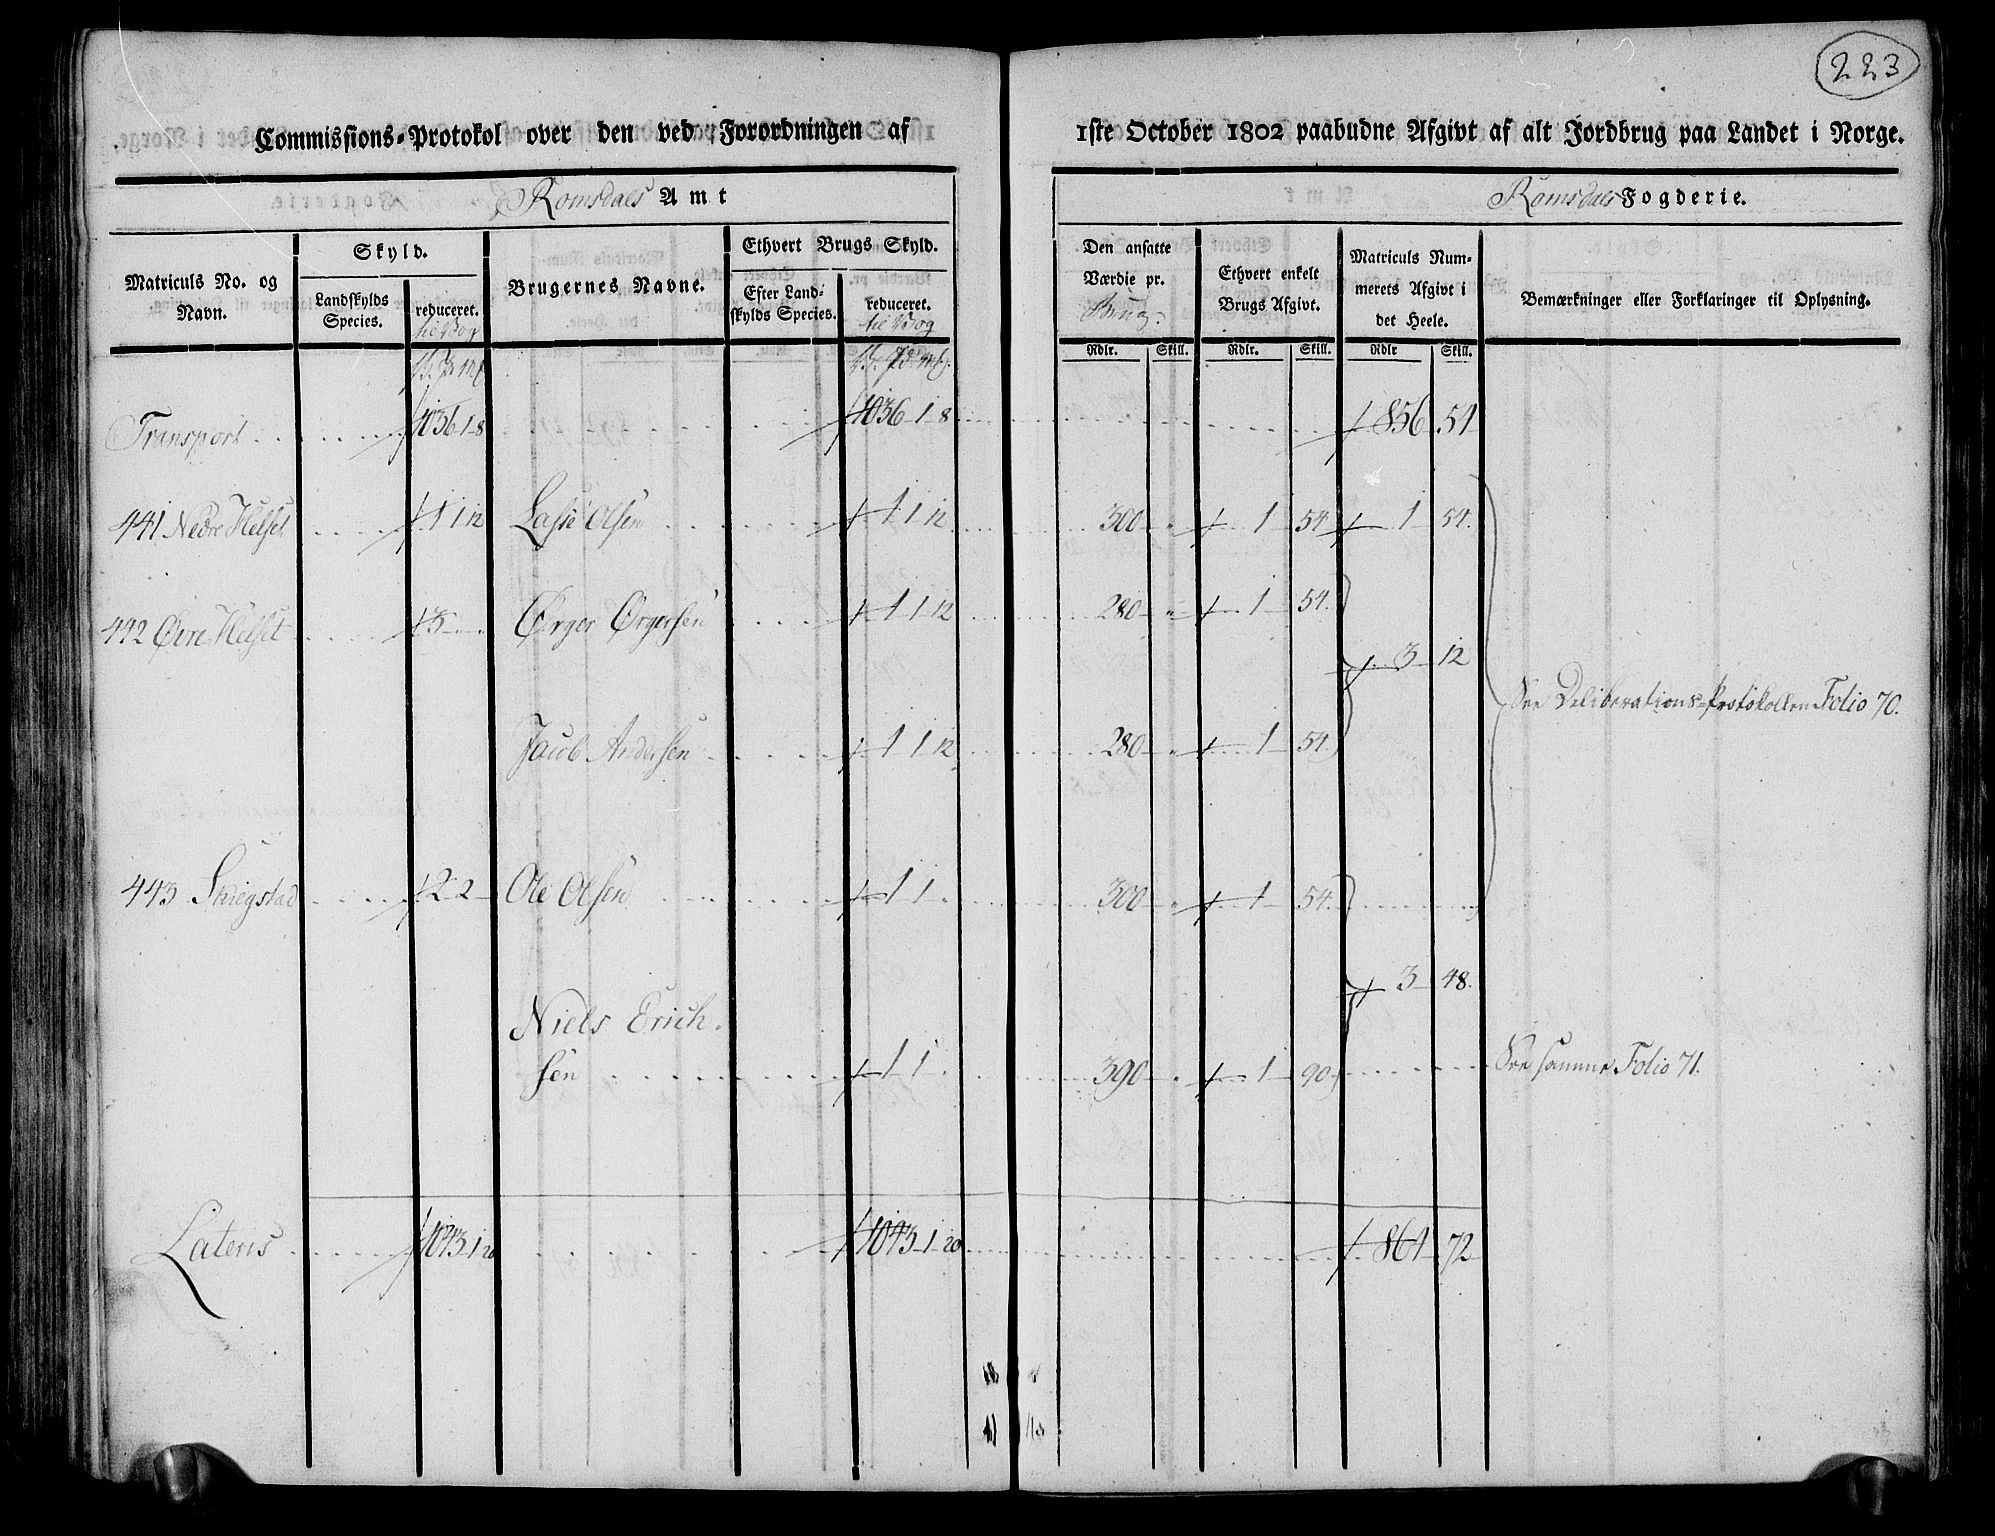 223
Commissions-Protokol over den ved Forordningen af 1ste October 1802 paabudne Afgivt af alt Jordbrug paa Landet i Norge.
Romsdals Amt
Romsdals Fogderie.
Matriculs No. og Navn.
Skyld.
Landskylds Species.
reduceret.
til Vog
Brugernes Navne.
Ethvert Brugs Skyld.
Efter Landskylds Species.
reduceret.
til Vog
Den ansatte Værdie pr.
Brug.
Ethvert enkelt Brugs Afgivt.
Matriculs Nummerets Afgivt i det Heele.
Bemærkninger eller Forklaringer til Oplysning.
Rdlr. Skill. Rdlr. Skill. Rdlr Skill.
Transport 1036 1 8 1036 1 8 856 54
441 Nedre Helset 1 1 12 Lasse Olsen 1 1 12 300 1 54 1 54.
442 Øvre Helset 3 Ørger Ørgersen 1 1 12 280 1 54.
3 12
See Deliberations-Protokollen Folio 70.
Jacob Andersen 1 1 12 280 1 54.
443 2 2 Ole Olsen 1 1 300 1 54.
3 48.
Niels Erich-
sen 1 1 390 1 90 See samme Folio 71.
Lateris 1043 1 20 1043 1 20 861 72